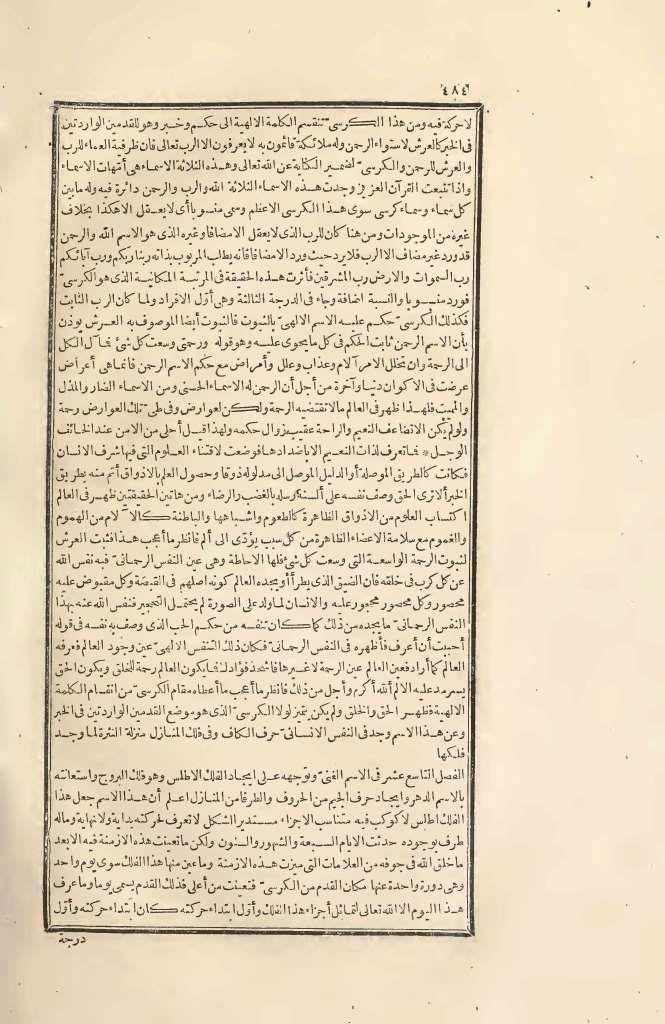 ٤٨٤
لا حركة فيه ومن هذا الكرسي تنقسم الكلمة الالهية الى حكم وخبر وهو للقدمين الواردتين
فى الخبر كالعرش لاستواء الرحمن وله ملائكة قائمون به لا يعرفون الا الرب تعالى فان ظرفية العماء للرب
والعرش للرحمن والكرسي لضمير الكناية عن الله تعالى وهذه الثلاثة الاسماء هى أمّهات الاسماء
واذا تتبعت القرآن العزيز وجدت هذه الاسماء الثلاثة الله والرب والرحمن دائرة فيه وله ما بين
كل سماء وسماء كرسي سوى هذا الكرسي الاعظم وسمى منسوبا أى لا يعقل الا هكذا بخلاف
غيره من الموجودات ومن هنا كان للرب الذى لا يعقل الا مضافا وغيره الذى هو الاسم الله والرحمن
قد ورد غير مضاف الا الرب فلا يرد حيث ورد الا مضافا فانه يطلب المربوب بذاته ربنا ربكم ورب آبائكم
رب السموات والارض رب المشرقين فأثرت هذه الحقيقة فى المرتبة المكانية الذى هو الكرسي
فورد منسوبا والنسبة اضافة وجاء فى الدرجة الثالثة وهى أوّل الافراد ولما كان الرب الثابت
فكذلك الكرسي حكم عليه الاسم الالهي بالثبوت فالثبوت أيضا الموصوف به العرش يؤذن
بأن الاسم الرحمن ثابت الحكم فى كل ما يحوى عليه وهو قوله ورحمتى وسعت كل شئ فمآل الكل
الى الرحمة وان تخلل الامر آلام وعذاب وعلل وأمراض مع حكم الاسم الرحمن فانما هى أعراض
عرضت فى الاكوان دنيا وآخرة من أجل أن الرحمن له الاسماء الحسنى ومن الاسماء الضار والمذل
والمميت فلهذا ظهر فى العالم ما لا تقتضيه الرحمة ولكن لعوارض وفى طى تلك العوارض رحمة
ولو لم يكن الا تضاعف النعيم والراحة عقيب زوال حكمه ولهذا قيل أحلى من الامن عند الخائف
الوجل * فما تعرف لذات النعيم الا باضدادها فوضعت لاقتناء العلوم التى فيها شرف الانسان
فكانت كالطريق الموصلة أو الدليل الموصل الى مدلوله ذوقا وحصول العلم بالاذواق أتم منه بطريق
الخبر ألا ترى الحق وصف نفسه على ألسنة رسله بالغضب والرضاء ومن هاتين الحقيقتين ظهر فى العالم
اكتساب العلوم من الاذواق الظاهرة كالطعوم واشباهها والباطنة كالآلام من الهموم
والغموم مع سلامة الاعضاء الظاهرة من كل سبب يؤدّى الى ألم فانظر ما أعجب هذا فثبت العرش
لثبوت الرحمة الواسعة التى وسعت كل شئ فلها الاحاطة وهى عين النفس الرحمانى فبه نفس الله
عن كل كرب فى خلقه فان الضيق الذى يطرأ أو يجده العالم كونه أصلهم فى القبضة وكل مقبوض عليه
محصور وكل محصور محجور عليه والانسان لما ولد على الصورة لم يحتمل التحجير فنفس الله عنه بهذا
النفس الرحمانى ما يجده من ذلك كما كان تنفسه من حكم الحب الذى وصف به نفسه فى قوله
أحببت أن أعرف فأظهره فى النفس الرحمانى فكان ذلك التنفس الالهي عين وجود العالم فعرفه
العالم كما أراد فعين العالم عين الرحمة لا غيرها فاشحذ فؤادك فما يكون العالم رحمة للخلق ويكون الحق
يسرمد عليه الالم الله أكرم وأجل من ذلك فانظر ما أعجب ما أعطاه مقام الكرسي من انقسام الكلمة
الالهية فظهر الحق والخلق ولم يكن يتميز لولا الكرسي الذى هو موضع القدمين الواردتين فى الخبر
وعن هذا الاسم وجد فى النفس الانسانى حرف الكاف وفى فلك المنازل منزلة النثرة لما وجد
فلكها
الفصل التاسع عشر فى الاسم الغنىّ وتوجهه على ايجاد الفلك الاطلس وهو فلك البروج واستعانته
بالاسم الدهر وايجاد حرف الجيم من الحروف والطرفا من المنازل اعلم أن هذا الاسم جعل هذا
الفلك اطلس لا كوكب فيه متماثل الاجزاء مستدير الشكل لا تعرف لحركته بداية ولا نهاية وماله
طرف بوجوده حدثت الايام السبعة والشهور والسنون ولكن ما تعينت هذه الازمنة فيه الا بعد
ما خلق الله فى جوفه من العلامات التى ميزت هذه الازمنة وما عين منها هذا الفلك سوى يوم واحد
وهى دورة واحدة عينها مكان القدم من الكرسي فتعينت من أعلى فذلك القدم يسمى يوما وما عرف
هذا اليوم الا الله تعالى لتماثل أجزاء هذا الفلك وأوّل ابتداء حركته كان ابتداء حركته وأوّل
درجة